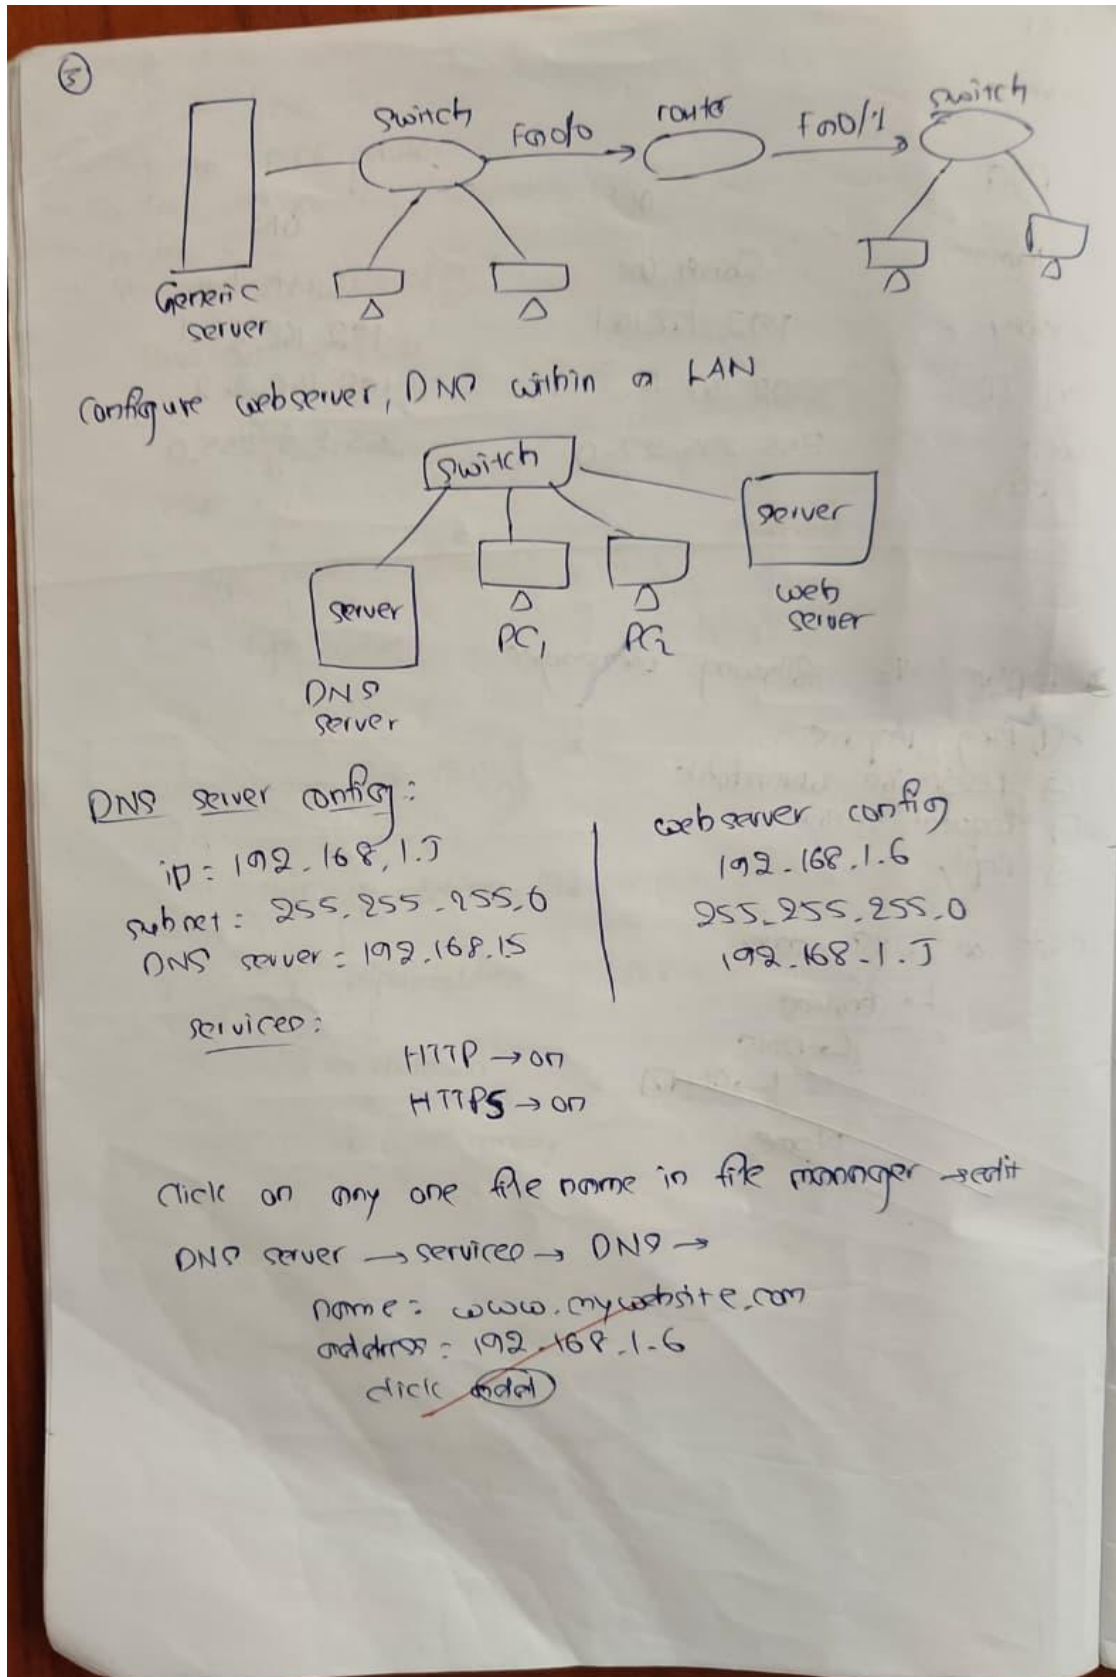 5
switch
Fa0/0
router
Fa0/1
switch
Generic
server
Configure webserver, DNS within a LAN
switch
server
server
web
server
PC1
PC2
DNS
server
DNS server config:
ip = 192.168.1.5
subnet = 255.255.255.0
DNS server = 192.168.1.5
webserver config
192.168.1.6
255.255.255.0
192.168.1.5
services:
HTTP → on
HTTPS → on
click on any one file name in file manager → edit
DNS server → services → DNS →
name = www.mywebsite.com
address = 192.168.1.6
click add